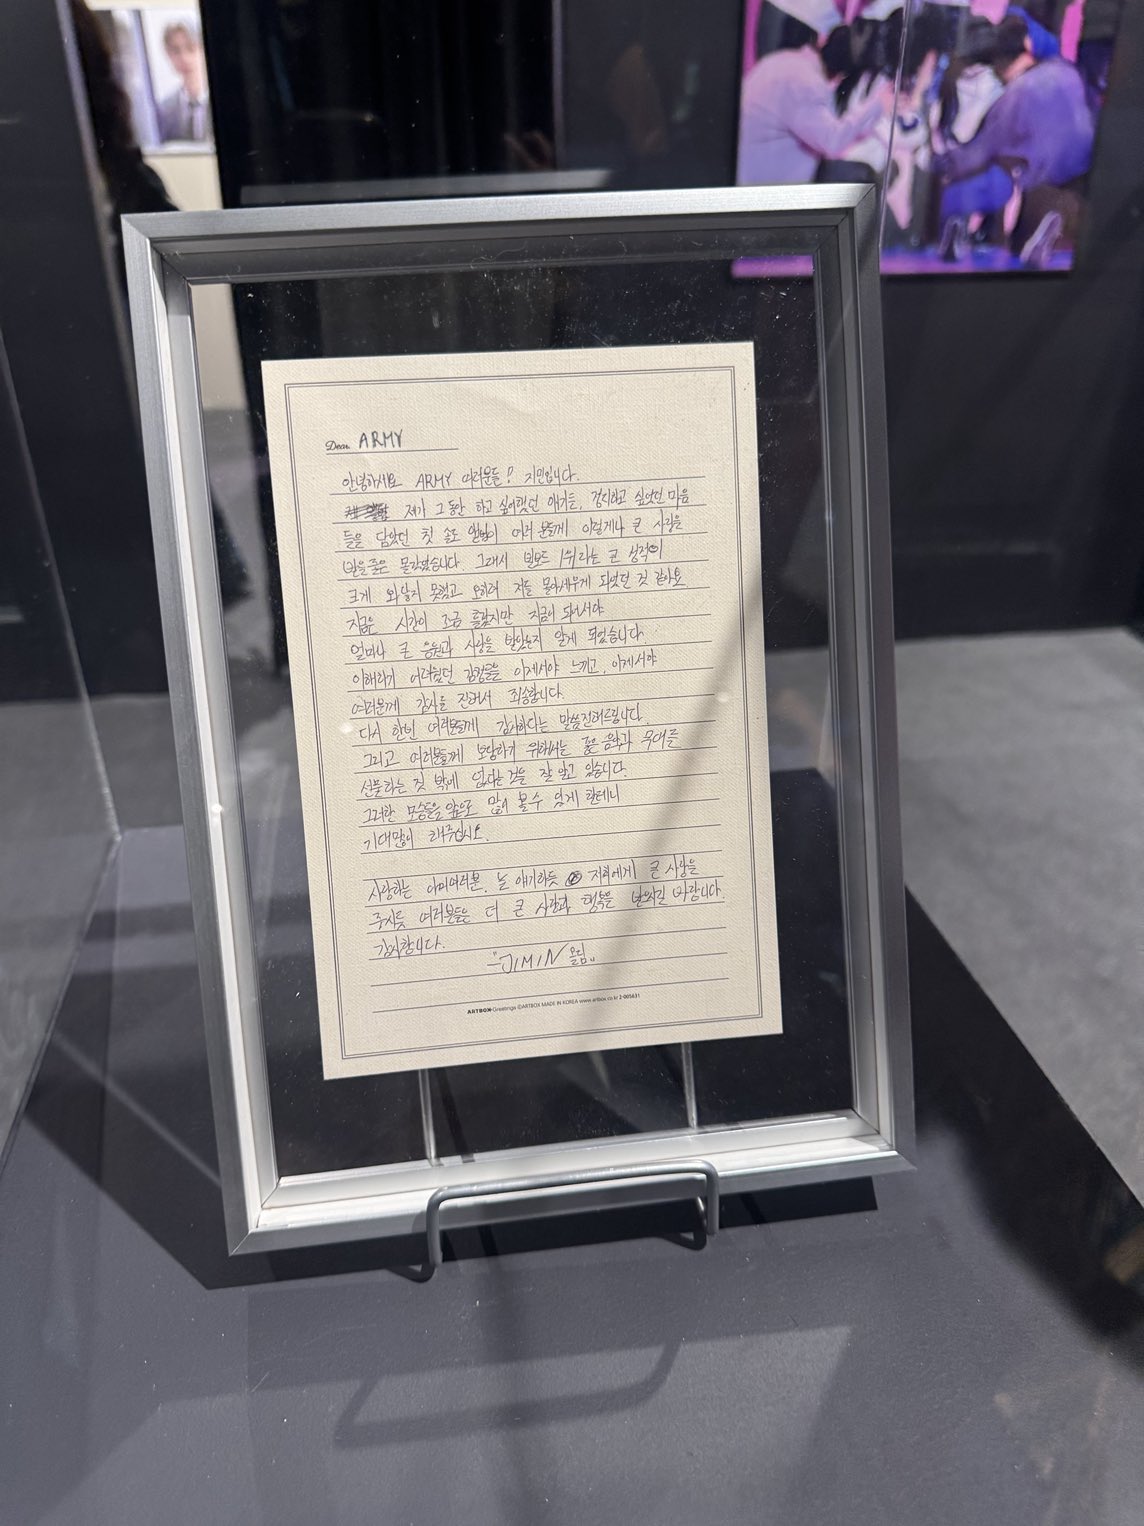 Dear. ARMY
안녕하세요 ARMY 여러분들! 지민입니다.
제가 그동안 하고 싶어했던 얘기들, 정리하고 싶었던 마음
들을 담았던 첫 솔로 앨범이 여러분들께 이렇게나 큰 사랑을
받을줄은 몰랐었습니다. 그래서 빌보드 1위라는 큰 성적이
크게 와닿지 못했고 오히려 저를 몰아세우게 되었던 것 같아요
지금은 시간이 조금 흘렀지만 지금이 되어서야
얼마나 큰 응원과 사랑을 받았는지 알게 되었습니다.
이해하기 어려웠던 감정들을 이제서야 느끼고, 이제서야
여러분께 감사를 전해서 죄송합니다.
다시 한번 여러분들께 감사하다는 말씀전해드립니다.
그리고 여러분들께 보답하기 위해서는 좋은 음악과 무대를
선물하는 것 밖에 없다는 것을 잘 알고 있습니다.
그러한 모습들을 앞으로 많이 볼 수 있게 할테니
기대많이 해주십시오.
사랑하는 아미여러분, 늘 얘기하듯 저희에게 큰 사랑을
주시듯 여러분들은 더 큰 사랑과 행복을 받으시길 바랍니다.
감사합니다.
JIMIN 올림..
ARTBOX Greetings ©ARTBOX MADE IN KOREA www.artbox.co.kr 2-005631